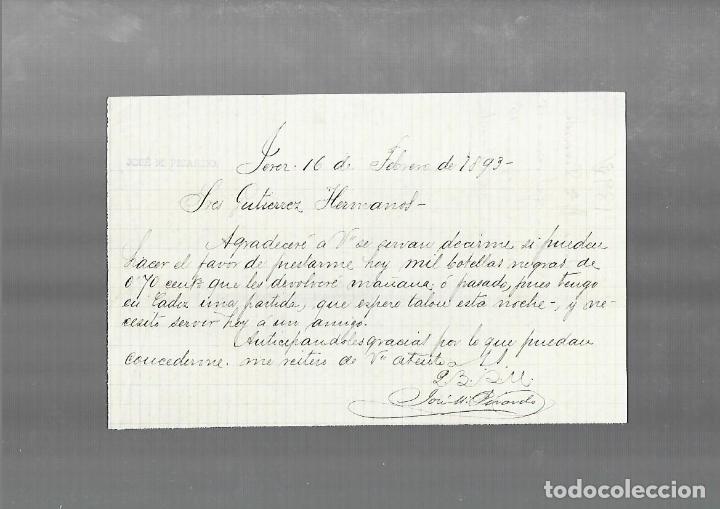 Jerez 16 de Febrero de 1893-
Sres Gutierrez Hermanos-
Agradeceré á Vs se sirvan decirme si puedan
hacer el favor de prestarme hoy mil botellas negras de
0'70 cents que les devolveré mañana, ó pasado, pues tengo
en Cadiz una partida, que espero talon esta noche-, y ne-
cesito servir hoy á un amigo.
Anticipandoles gracias por lo que puedan
concederme. me reitero de Vs atento S.S.
Q.B.S.M.
José M.
todocoleccion.net